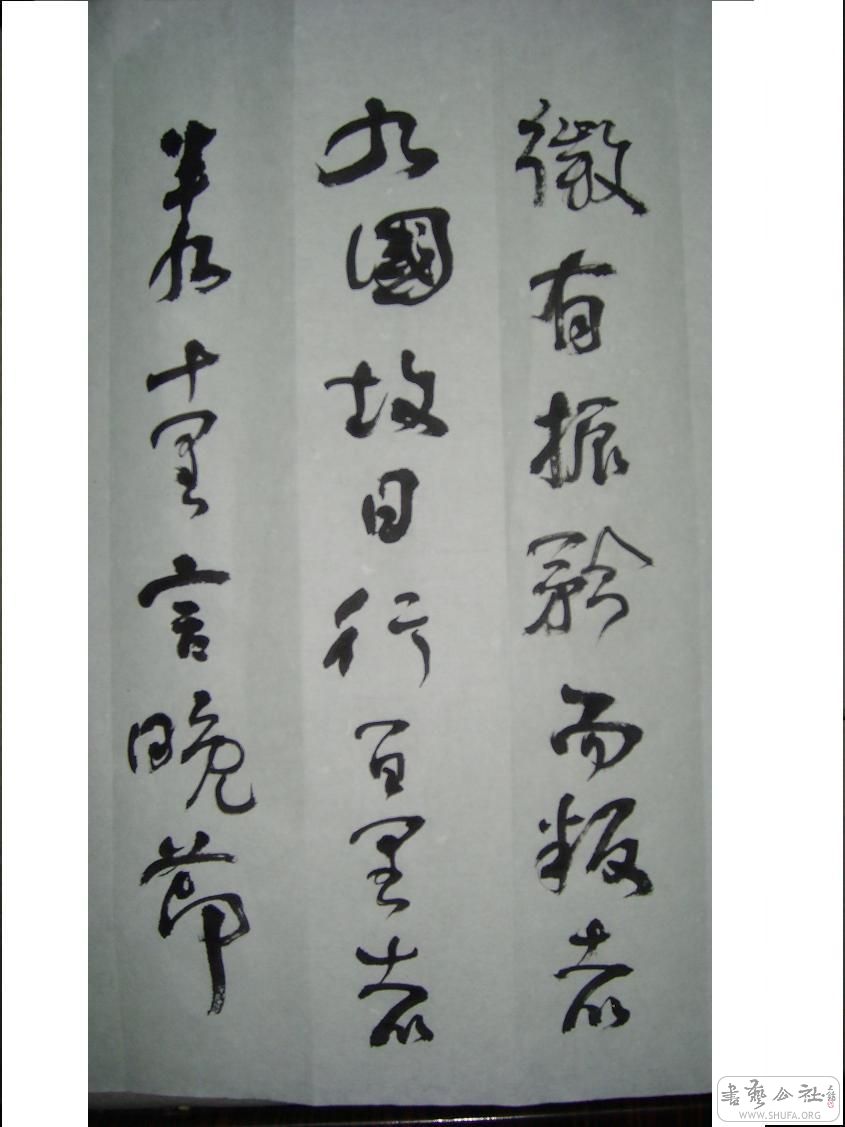 微有振矜而叛者
九國故曰行百里者
半九十里言晚節
書藝公社
WWW.SHUFA.ORG